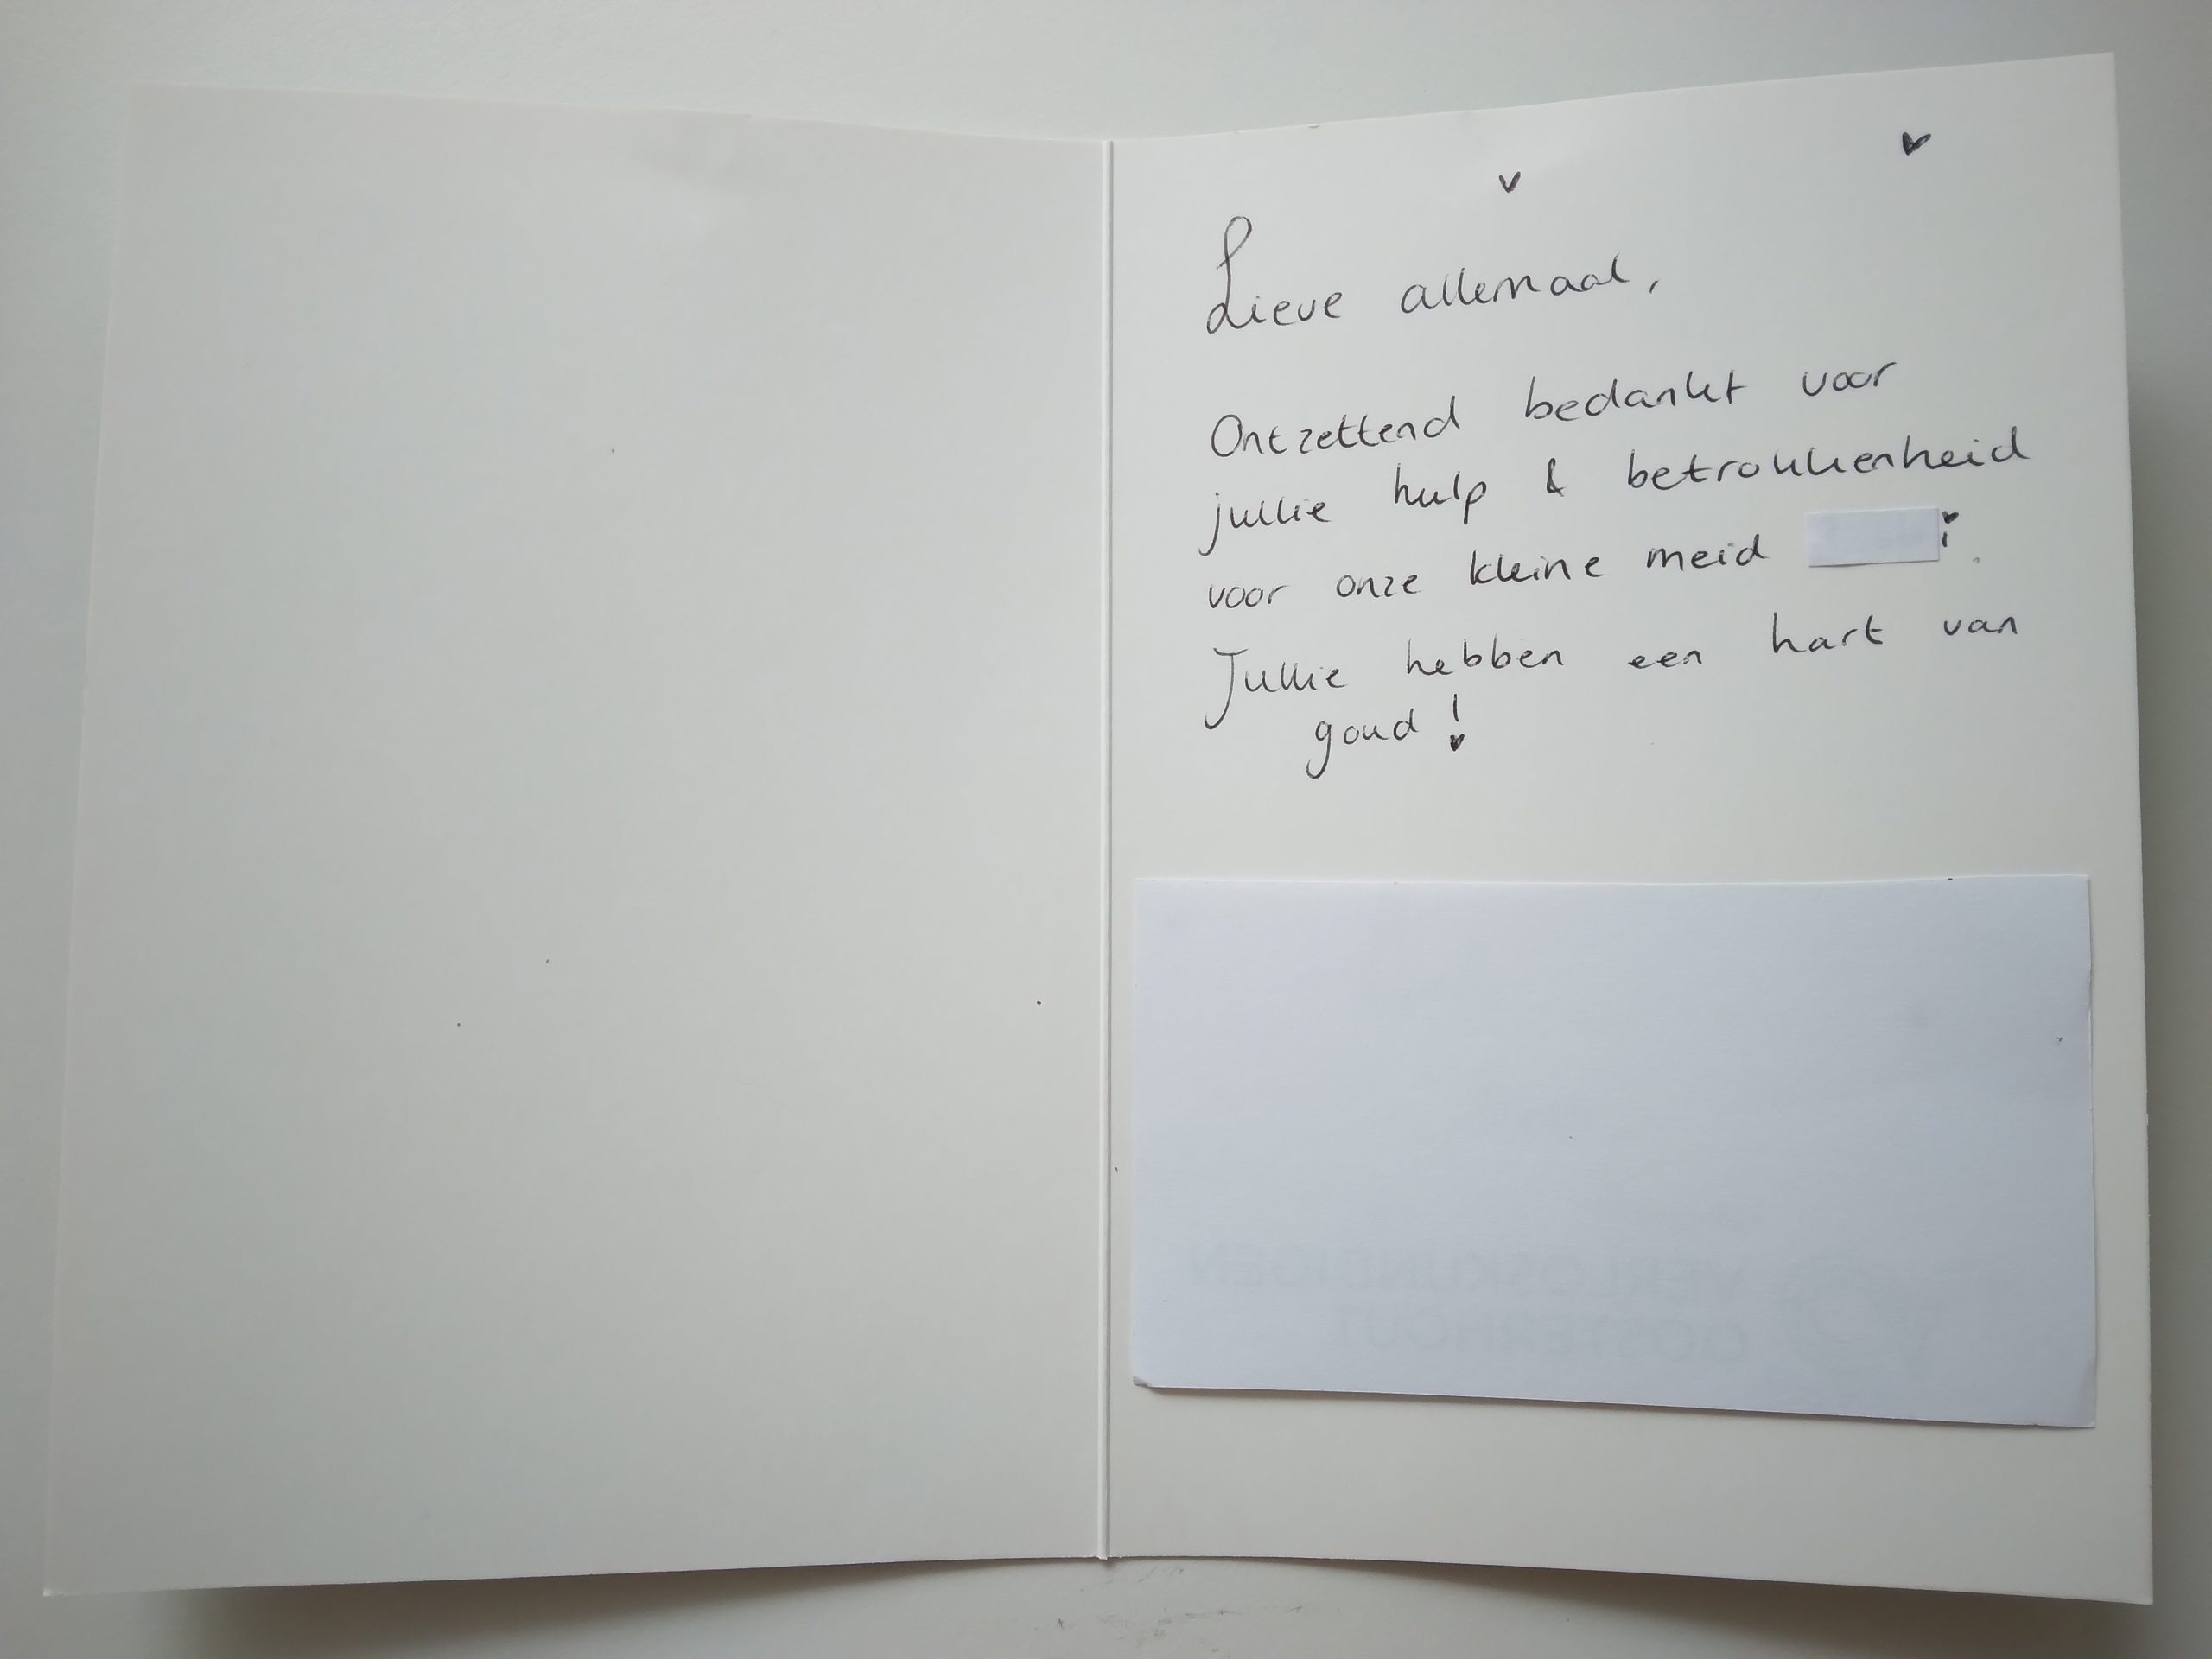 Lieve allemaal,
Ontzettend bedankt voor
jullie hulp & betrokkenheid
voor onze kleine meid
Jullie hebben een hart van
goud!
VERLOSKUNDIGEN
OOSTERHOUT